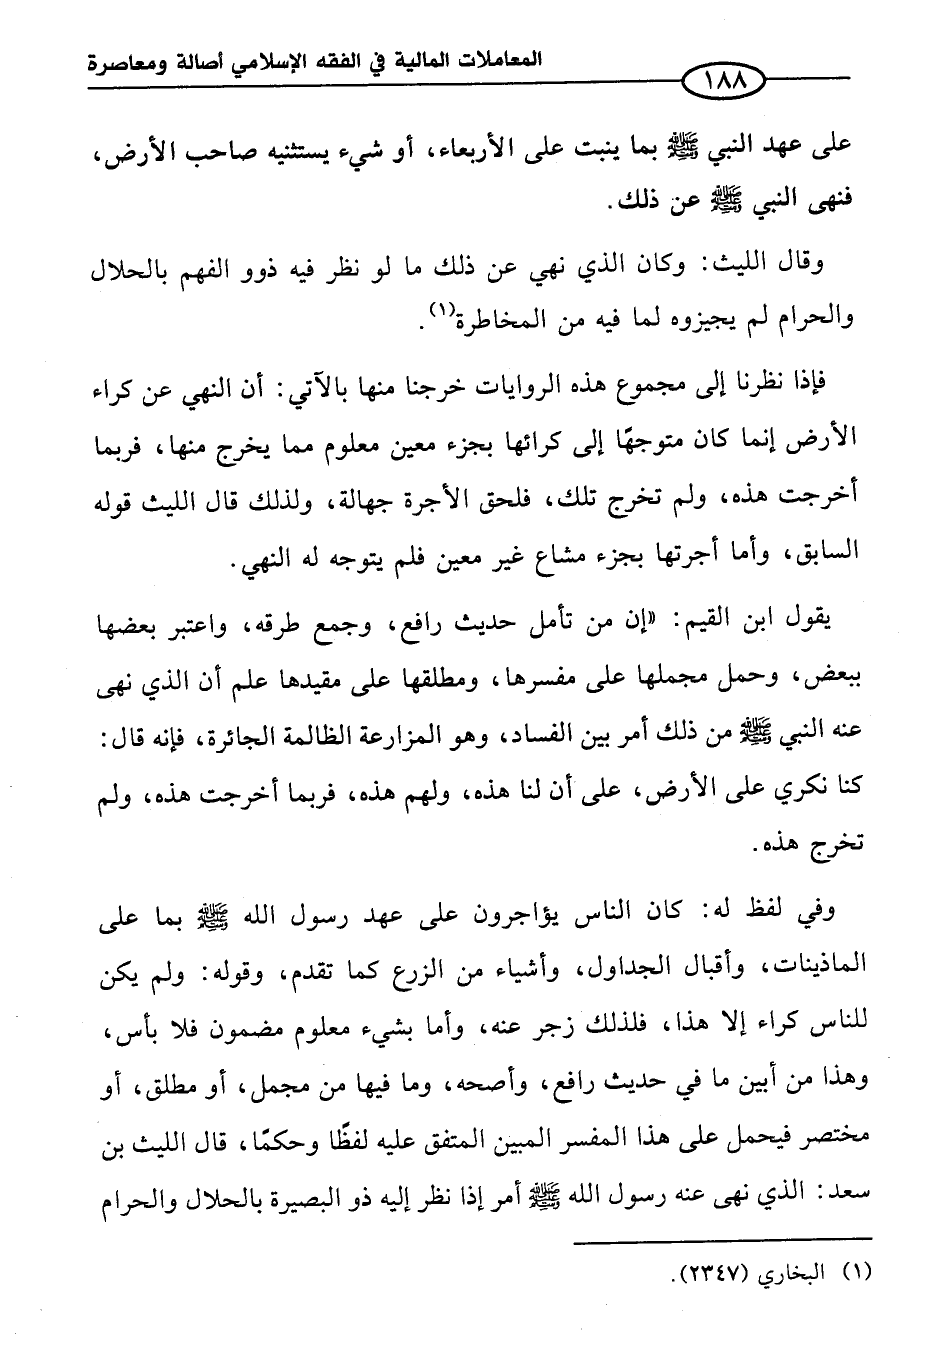 المعاملات المالية في الفقه الإسلامي أصالة ومعاصرة
١٨٨
على عهد النبي ﷺ بما ينبت على الأربعاء، أو شيء يستثنيه صاحب الأرض،
فنهى النبي ﷺ عن ذلك.
وقال الليث: وكان الذي نهي عن ذلك ما لو نظر فيه ذوو الفهم بالحلال
والحرام لم يجيزوه لما فيه من المخاطرة(١).
فإذا نظرنا إلى مجموع هذه الروايات خرجنا منها بالآتي: أن النهي عن كراء
الأرض إنما كان متوجهًا إلى كرائها بجزء معين معلوم مما يخرج منها، فربما
أخرجت هذه، ولم تخرج تلك، فلحق الأجرة جهالة، ولذلك قال الليث قوله
السابق، وأما أجرتها بجزء مشاع غير معين فلم يتوجه له النهي.
يقول ابن القيم: «إن من تأمل حديث رافع، وجمع طرقه، واعتبر بعضها
ببعض، وحمل مجملها على مفسرها، ومطلقها على مقيدها علم أن الذي نهى
عنه النبي ﷺ من ذلك أمر بين الفساد، وهو المزارعة الظالمة الجائرة، فإنه قال:
كنا نكري على الأرض، على أن لنا هذه، ولهم هذه، فربما أخرجت هذه، ولم
تخرج هذه.
وفي لفظ له: كان الناس يؤاجرون على عهد رسول الله ﷺ بما على
الماذينات، وأقبال الجداول، وأشياء من الزرع كما تقدم، وقوله: ولم يكن
للناس كراء إلا هذا، فلذلك زجر عنه، وأما بشيء معلوم مضمون فلا بأس،
وهذا من أبين ما في حديث رافع، وأصحه، وما فيها من مجمل، أو مطلق، أو
مختصر فيحمل على هذا المفسر المبين المتفق عليه لفظًا وحكمًا، قال الليث بن
سعد: الذي نهى عنه رسول الله ﷺ أمر إذا نظر إليه ذو البصيرة بالحلال والحرام
(١) البخاري (٢٣٤٧).